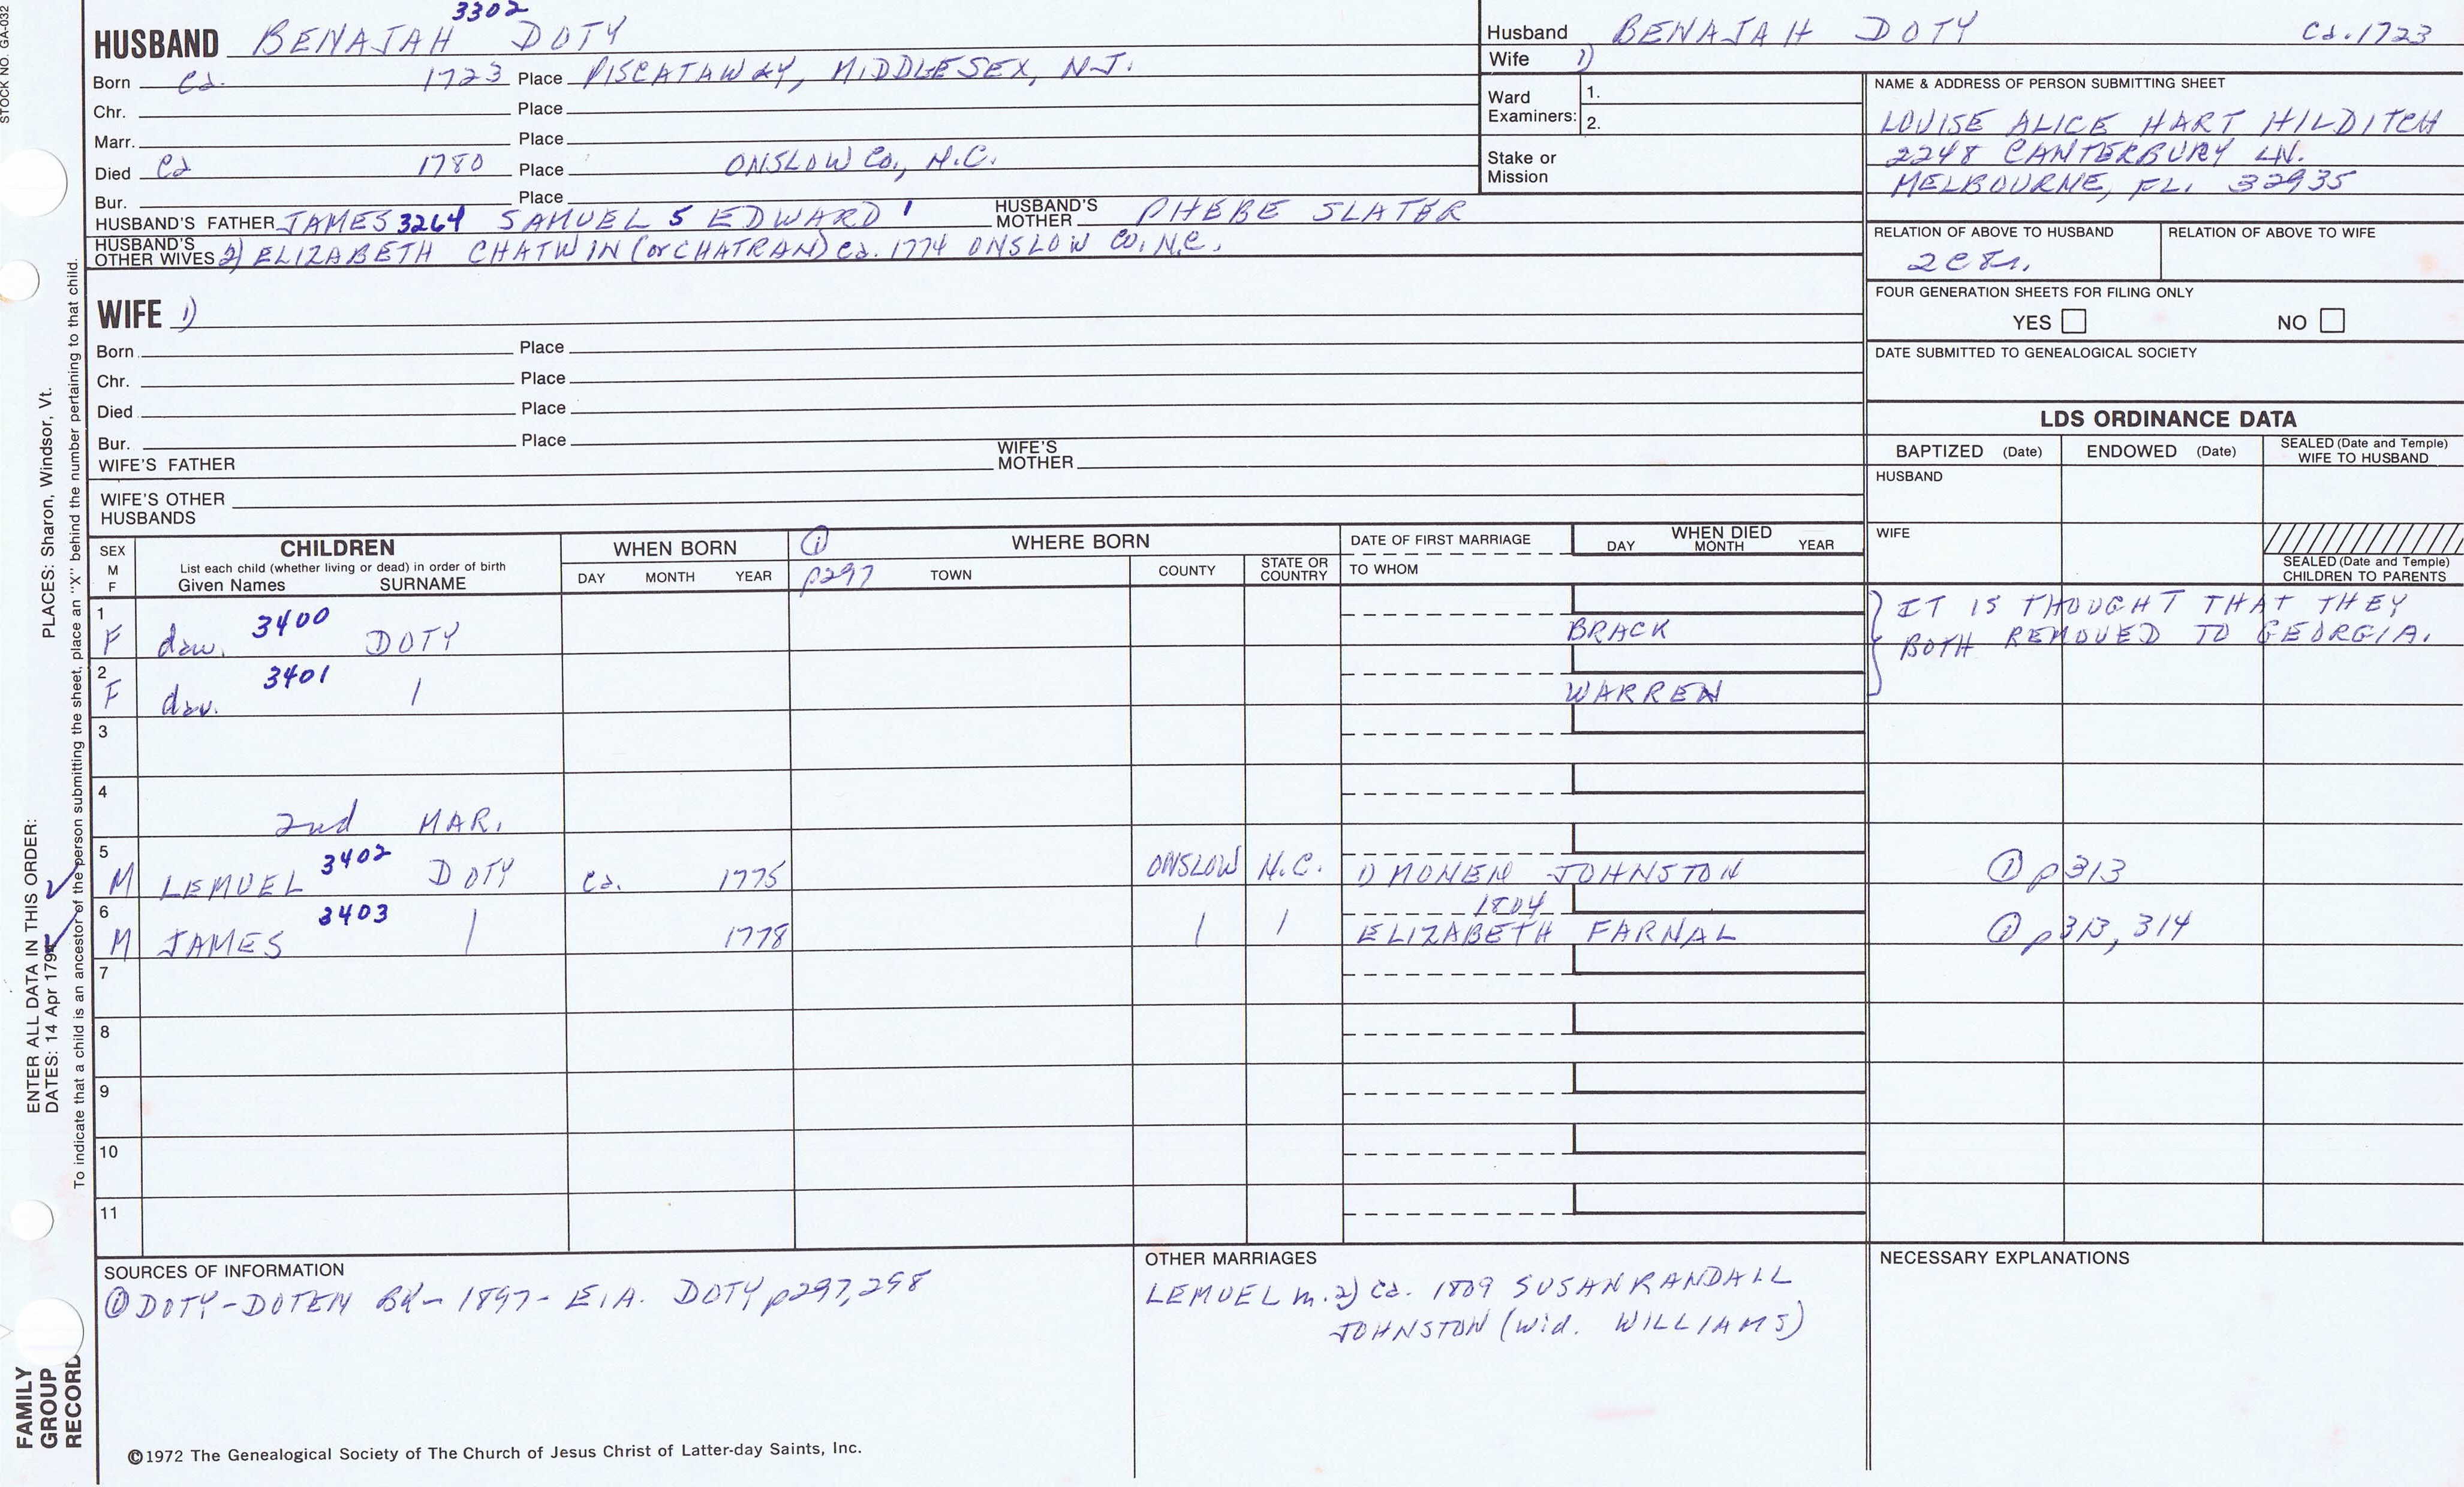 STOCK NO. GA-032
3302
HUSBAND BENAJAH DOTY
Born Ca. 1723 Place PISCATAWAY, MIDDLESEX, N.J.
Chr. Place
Marr. Place
Died Ca 1780 Place ONSLOW Co., N.C.
Bur. Place
HUSBAND'S FATHER JAMES 3264 SAMUEL 5 EDWARD 1 HUSBAND'S MOTHER PHEBE SLATER
HUSBAND'S OTHER WIVES 2) ELIZABETH CHATWIN (or CHATRAN) Ca. 1774 ONSLOW CO., N.C.
WIFE 1)
Born Place
Chr. Place
Died Place
Bur. Place
WIFE'S FATHER WIFE'S MOTHER
WIFE'S OTHER HUSBANDS
Husband BENAJAH DOTY Ca. 1723
Wife 1)
Ward Examiners: 1.
2.
Stake or Mission
NAME & ADDRESS OF PERSON SUBMITTING SHEET
LOUISE ALICE HART HILDITCH
2248 CANTERBURY LN.
MELBOURNE, FL. 32935
RELATION OF ABOVE TO HUSBAND RELATION OF ABOVE TO WIFE
FOUR GENERATION SHEETS FOR FILING ONLY
YES NO
DATE SUBMITTED TO GENEALOGICAL SOCIETY
LDS ORDINANCE DATA
BAPTIZED (Date) ENDOWED (Date) SEALED (Date and Temple) WIFE TO HUSBAND
HUSBAND
WIFE
SEALED (Date and Temple) CHILDREN TO PARENTS
SEX M F
CHILDREN
List each child (whether living or dead) in order of birth
Given Names SURNAME
WHEN BORN
DAY MONTH YEAR
① p297
WHERE BORN
TOWN COUNTY STATE OR COUNTRY
DATE OF FIRST MARRIAGE
TO WHOM
WHEN DIED
DAY MONTH YEAR
1 F dau. 3400 DOTY BRACK
2 F dau. 3401 | WARREN
IT IS THOUGHT THAT THEY
BOTH REMOVED TO GEORGIA.
3
4
2nd MAR.
5 M LEMUEL 3402 DOTY Ca. 1775 ONSLOW N.C. 1) MONEN JOHNSTON ① p313
6 M JAMES 3403 | 1778 | | 1804 ELIZABETH FARNAL ① p313, 314
7
8
9
10
11
SOURCES OF INFORMATION
① DOTY-DOTEN BK- 1897- E.A. DOTY p297,298
OTHER MARRIAGES
LEMUEL m. 2) Ca. 1809 SUSAN RANDALL
JOHNSTON (wid. WILLIAMS)
NECESSARY EXPLANATIONS
©1972 The Genealogical Society of The Church of Jesus Christ of Latter-day Saints, Inc.
ENTER ALL DATA IN THIS ORDER:
DATES: 14 Apr 1794
PLACES: Sharon, Windsor, Vt.
To indicate that a child is an ancestor of the person submitting the sheet, place an "X" behind the number pertaining to that child.
FAMILY
GROUP
RECORD